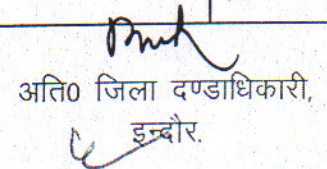 अति0 जिला दण्डाधिकारी,
इन्दौर.